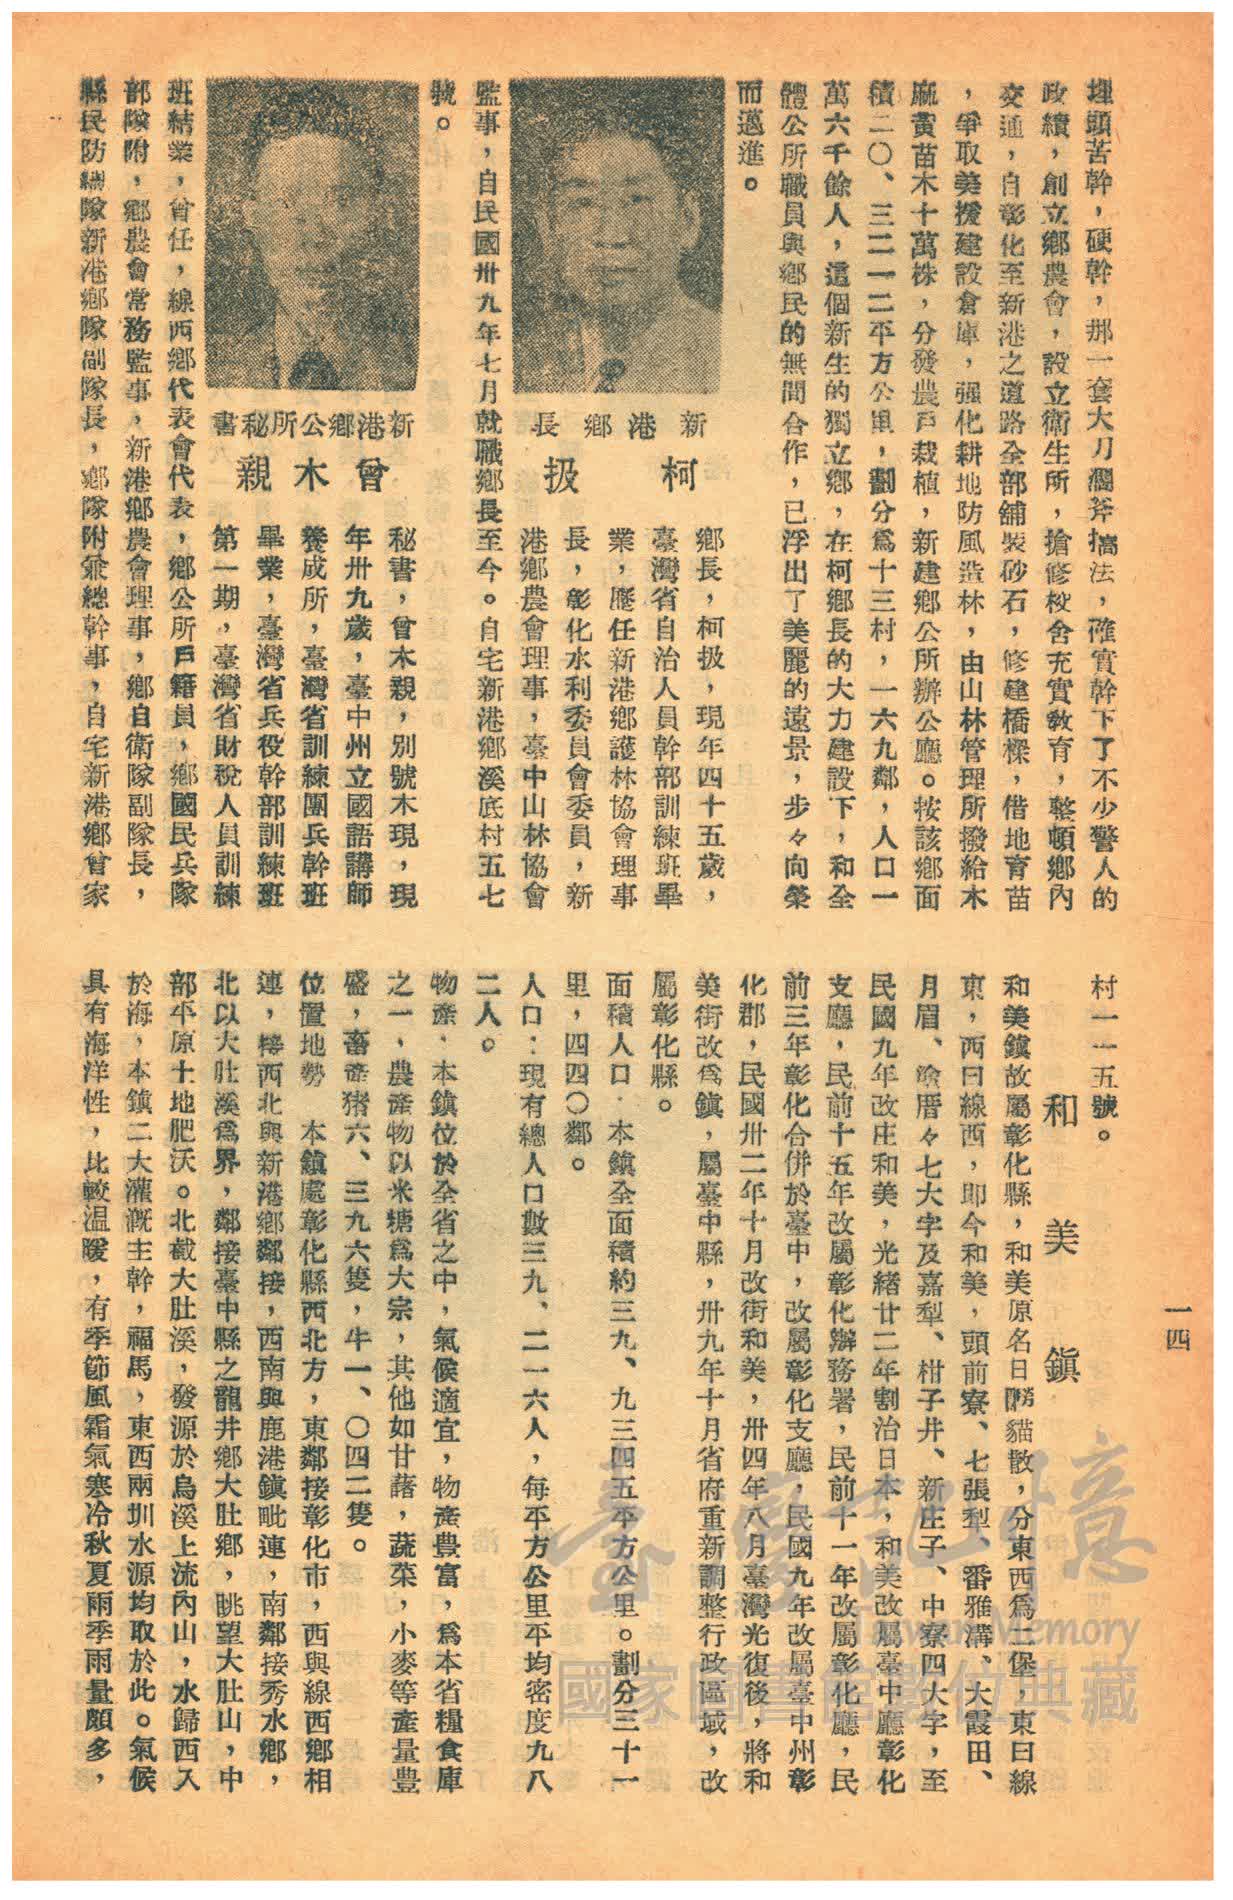 埋頭苦幹，硬幹，那一套大刀濶斧搞法，確實幹下了不少警人的
政績，創立鄉農會，設立衛生所，搶修校舍充實教育，整頓鄉內
交通，自彰化至新港之道路全部舖裝砂石，修建橋樑，借地育苗
，爭取美援建設倉庫，强化耕地防風造林，由山林管理所撥給木
麻黃苗木十萬株，分發農戶栽植，新建鄉公所辦公廳。按該鄉面
積二〇、三二一二平方公里，劃分爲十三村，一六九鄰，人口一
萬六千餘人，這個新生的獨立鄉，在柯鄉長的大力建設下，和全
體公所職員與鄉民的無間合作，已浮出了美麗的遠景，步々向榮
而邁進。
新港鄉長
柯扱
鄉長，柯扱，現年四十五歲，
臺灣省自治人員幹部訓練班畢
業，歷任新港鄉護林協會理事
長，彰化水利委員會委員，新
港鄉農會理事，臺中山林協會
監事，自民國卅九年七月就職鄉長至今。自宅新港鄉溪底村五七
號。
新港鄉公所秘書
曾木親
秘書，曾木親，別號木現，現
年卅九歲，臺中州立國語講師
養成所，臺灣省訓練團兵幹班
畢業，臺灣省兵役幹部訓練班
第一期，臺灣省財稅人員訓練
班結業，曾任，線西鄉代表會代表，鄉公所戶籍員，鄉國民兵隊
部隊附，鄉農會常務監事，新港鄉農會理事，鄉自衛隊副隊長，
縣民防總隊新港鄉隊副隊長，鄉隊附兼總幹事，自宅新港鄉曾家
村一一五號。
和美鎮
和美鎮故屬彰化縣，和美原名日髒貓散，分東西爲二堡，東曰線
東，西曰線西，即今和美，頭前寮、七張犁、番雅溝、大霞田、
月眉、嘐厝々七大字及嘉犁、柑子井、新庄子、中寮四大字，至
民國九年改庄和美，光緒廿二年割治日本，和美改屬臺中廳彰化
支廳，民前十五年改屬彰化辦務署，民前十一年改屬彰化廳，民
前三年彰化合併於臺中，改屬彰化支廳，民國九年改屬臺中州彰
化郡，民國卅二年十月改街和美，卅四年八月臺灣光復後，將和
美街改爲鎮，屬臺中縣，卅九年十月省府重新調整行政區域，改
屬彰化縣。
面積人口：本鎮全面積約三九、九三四五平方公里。劃分三十一
里，四四〇鄰。
人口：現有總人口數三九、二一六人，每平方公里平均密度九八
二人。
物產：本鎮位於全省之中，氣候適宜，物產豊富，爲本省糧食庫
之一，農產物以米糖爲大宗，其他如甘藷，蔬菜，小麥等產量豊
盛，畜產猪六、三九六隻，牛一、〇四二隻。
位置地勢　本鎮處彰化縣西北方，東鄰接彰化市，西與線西鄉相
連，轉西北與新港鄉鄰接，西南與鹿港鎮毗連，南鄰接秀水鄉，
北以大肚溪爲界，鄰接臺中縣之龍井鄉大肚鄉，眺望大肚山，中
部平原土地肥沃。北截大肚溪，發源於烏溪上流內山，水歸西入
於海，本鎮二大灌溉主幹，福馬，東西兩圳水源均取於此。氣候
具有海洋性，比較溫暖，有季節風霜氣寒冷秋夏雨季雨量頗多，
一四
臺灣記憶
Taiwan Memory
國家圖書館數位典藏